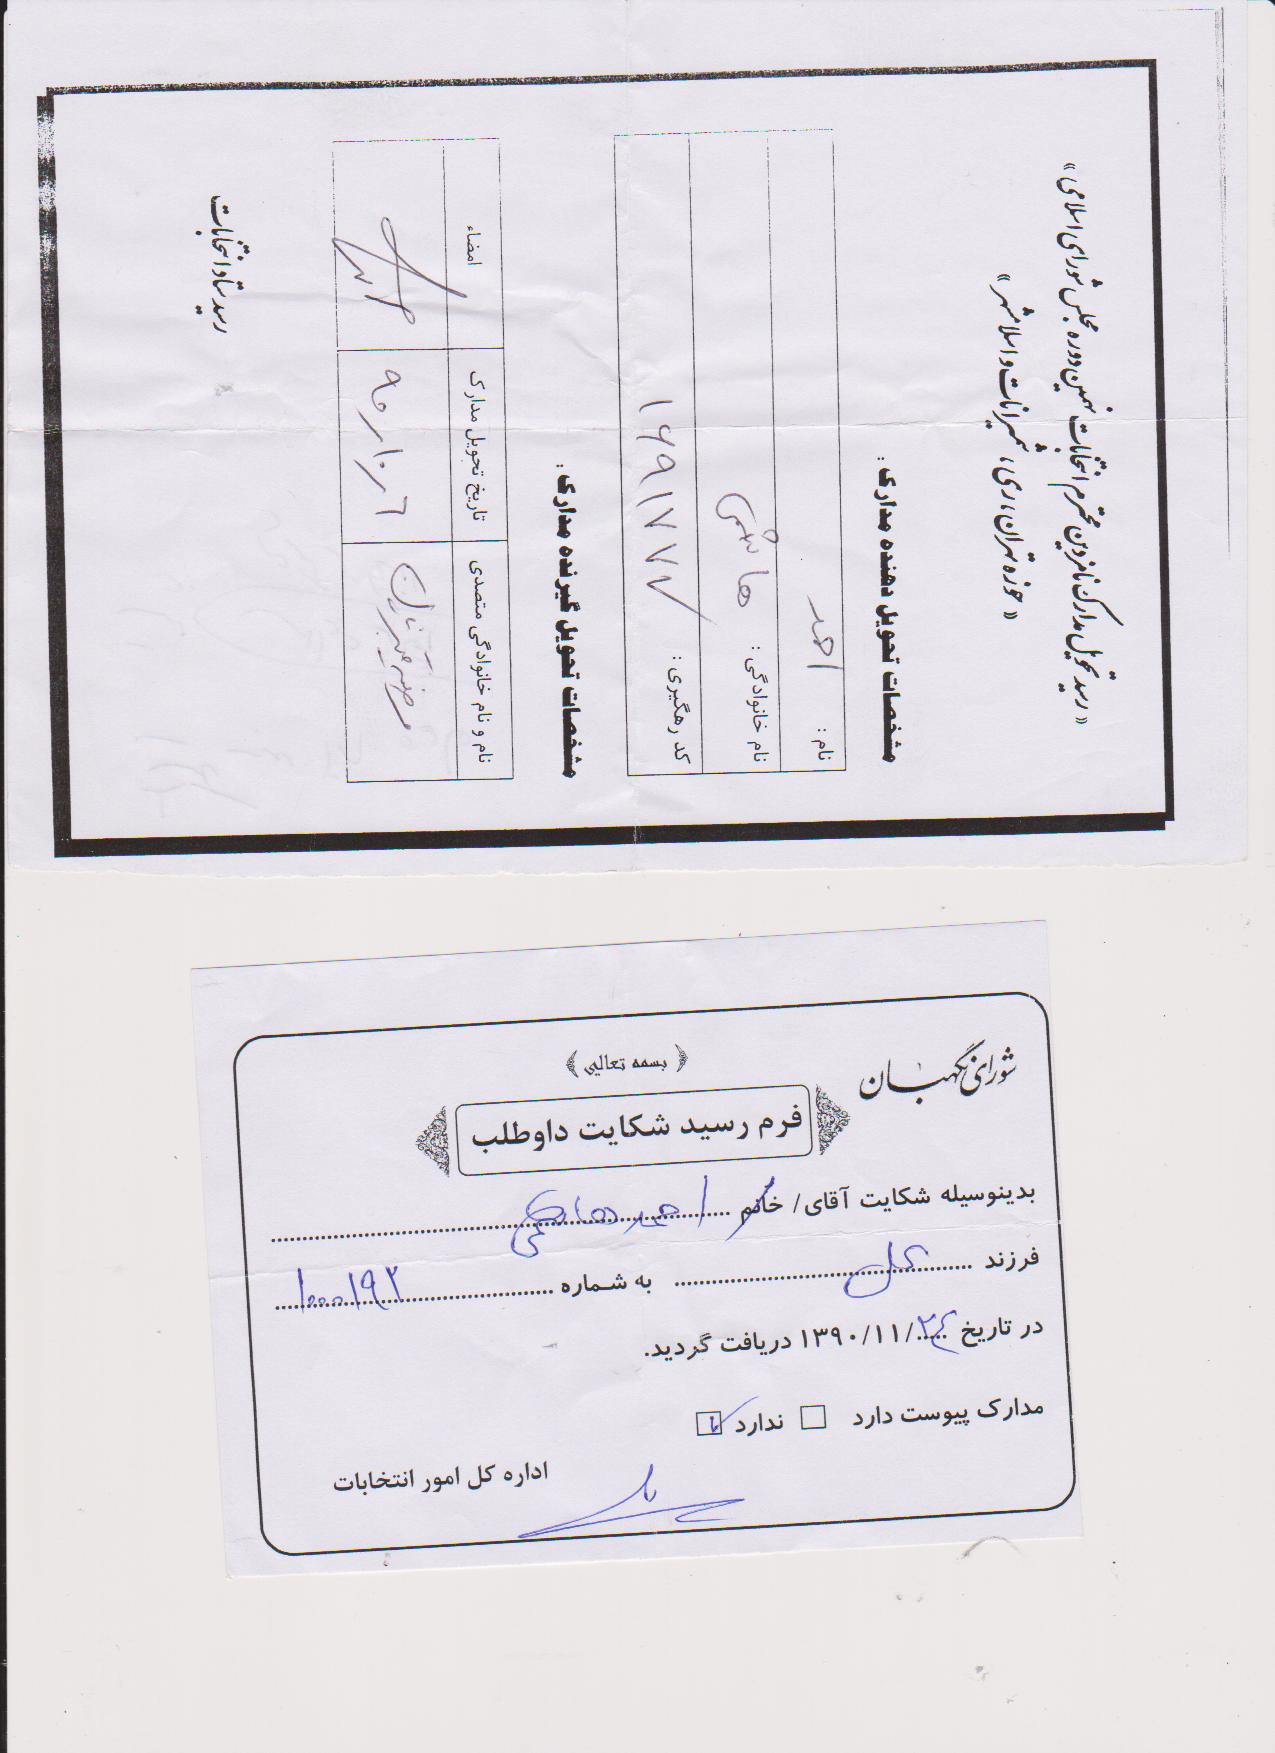 « رسید تحویل مدارک نامزدین محترم انتخابات نهمین دوره مجلس شورای اسلامی »
« حوزه تهران، ری، شمیرانات و اسلامشهر »
مشخصات تحویل دهنده مدارک :
نام : احمد
نام خانوادگی : هاشمی
کد رهگیری : ۱۶۹۱۷۷۷
مشخصات تحویل گیرنده مدارک :
نام و نام خانوادگی متصدی تاریخ تحویل مدارک امضاء
مرضیه ۹۰/۱۰/۶
رسید ستاد انتخابات
شورای نگهبان
بسمه تعالی
فرم رسید شکایت داوطلب
بدینوسیله شکایت آقای/ خانم احمد هاشمی
فرزند به شماره ۱۰۰۰۰۱۹۲
در تاریخ ۱۳۹۰/۱۱/۲۴ دریافت گردید.
مدارک پیوست دارد ندارد
اداره کل امور انتخابات